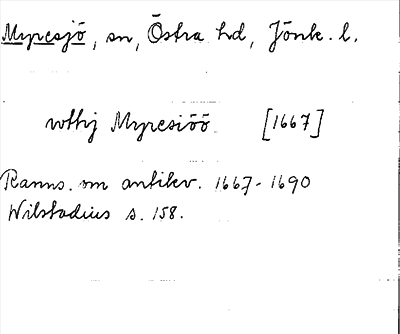 Myresjö, sn, Östra hd, Jönk. l.
wthj Myresiöö [1667]
Ranns. om antikv. 1667-1690
Wilstadius s. 158.